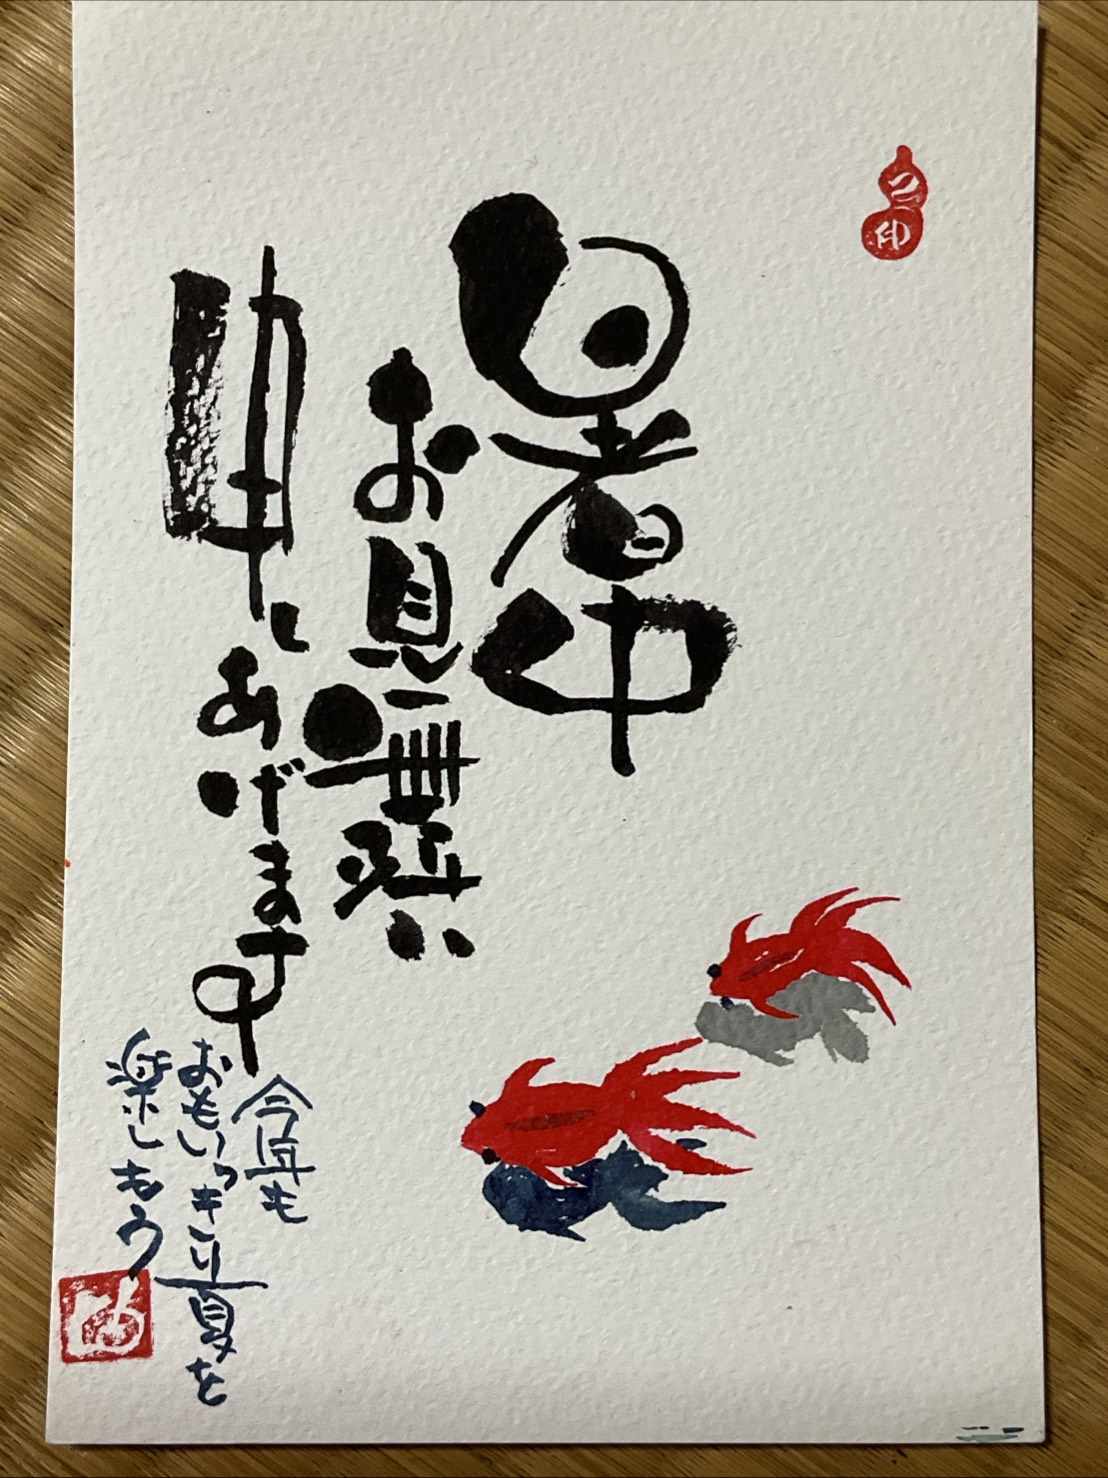 暑中
お見舞い
申しあげます
今年も
おもいっきり夏を
楽しもう